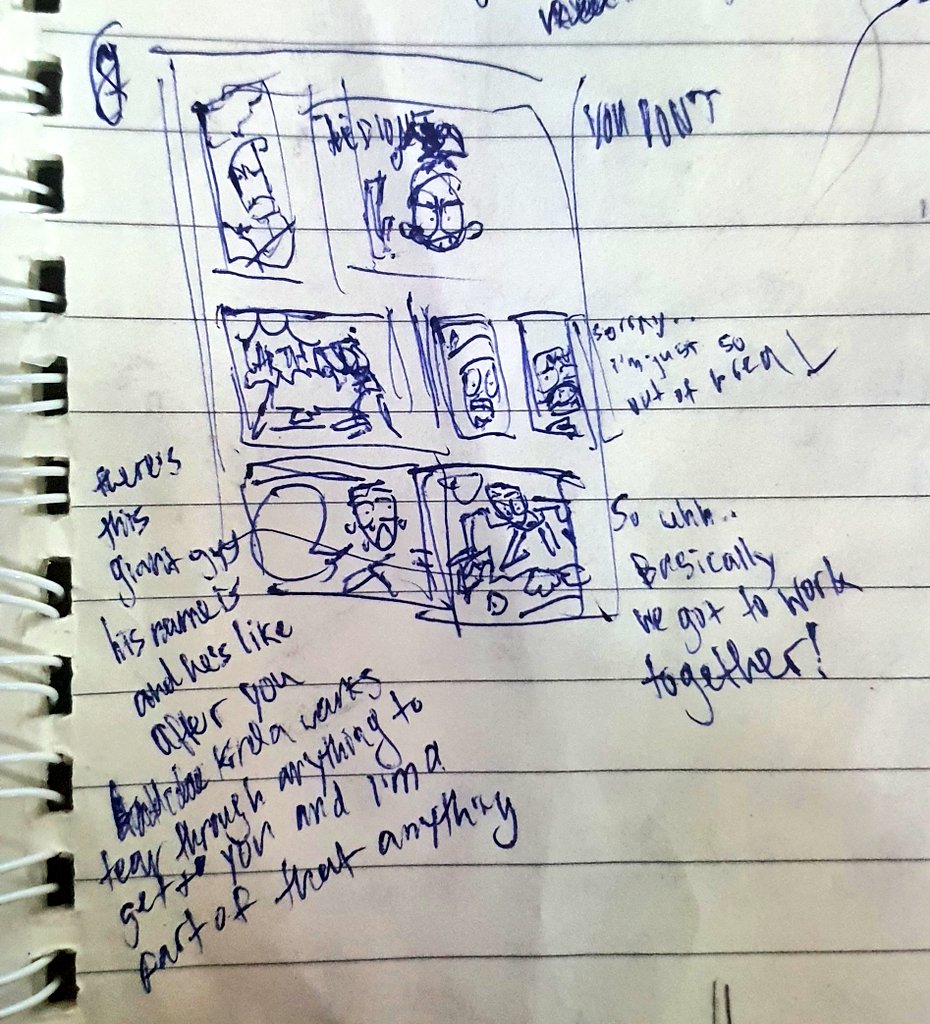 YOU DON'T
sorry...
i'm just so
out of breath
there's
this
giant guy
his name is
and he's like
after you
kinda wants
tear through anything to
get to you and I'm a
part of that anything
So uhh..
Basically
we got to work
together!